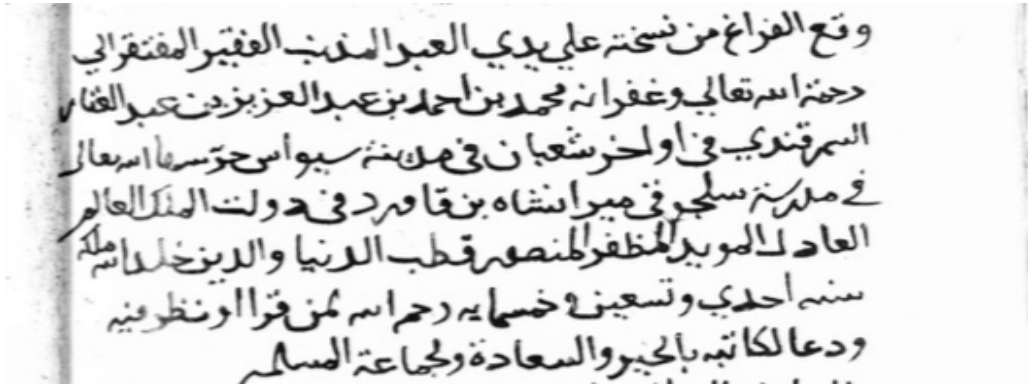 وقع الفراغ من نسخته علي يدي العبد المذنب الفقير المفتقر الي
رحمة الله تعالي وغفرانه محمد بن احمد بن عبد العزيز بن عبد الغفار
السمرقندي في اواخر شعبان في مدينة سيواس حرسها الله تعالى
في مدرسة سلجوقي ميرانشاه بن قاورد في دولت الملك العالم
العادل المويد المظفر المنصور قطب الدنيا والدين خلد الله ملكه
سنه احدي وتسعين و خمسمايه رحم الله لمن قرا او نظر فيه
ودعا لكاتبه بالخير والسعادة ولجماعة المسلمين